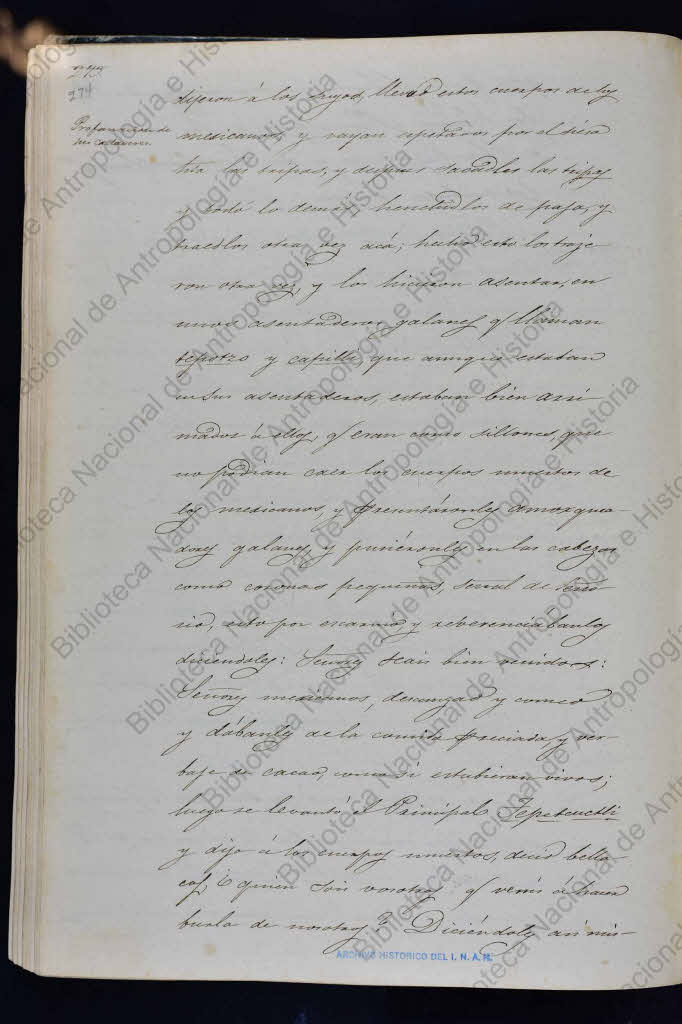 273
274
Profanacion de
los cadáveres.
dijeron á los suyos, llevad estos cuerpos de los
mexicanos y vayan reparados por el sieso
tria las tripas, y despues sacadles las tripas
y todo lo demás, henchidlos de paja, y
traedlos otra vez acá; hecho esto los traje-
ron otra vez, y los hicieron asentar, en
unos asentaderos galanes q/ llaman
tepotzo y capilli, que aunque estaban
en sus asentaderos, estaban bien arri-
mados á ellos, q/ eran como sillones, que
no podian caer los cuerpos muertos de
los mexicanos, y presentáronles amosquea-
dores galanes, y pusiéronles en las cabezas
como coronas pequeñas, señal de Seño-
rio, esto por escarnio, y reverenciabanles
diciéndoles: Señores seais bien venidos:
Señores mexicanos, descanzad y comed
y dábanles de la comida preciada, y ver-
baje de cacao, como si estubieran vivos;
luego se levantó el Principal Tepeteuctli
y dijo á los cuerpos muertos, decid bella-
cos, ¿ quien sois vosotros q/ venis á hacer
burla de nosotros? Diciéndoles asi mis-
ARCHIVO HISTORICO DEL I. N. A. H.
Biblioteca Nacional de Antropología e Historia